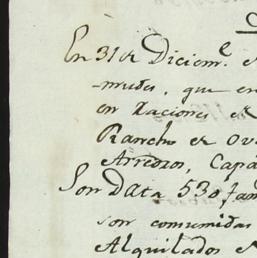 En 31 de Diciem.e
-mudas, que en
en Raciones de
Rancho de Ov
Arredros, Capa
Son Data 530
son comumidas
Alquilados